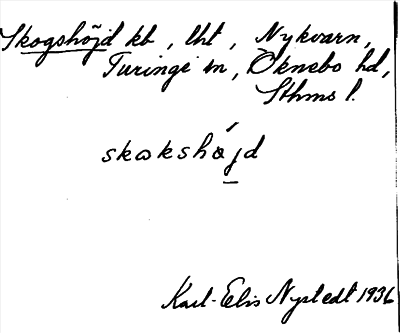 Skogshöjd kb, lht, Nykvarn,
Turinge sn, Öknebo hd,
Sthms l.
skokshøjd
Karl-Elis Nystedt 1936